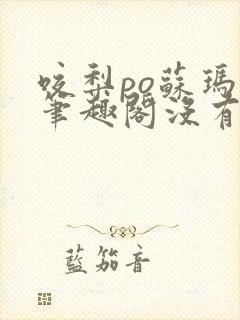 咬梨po蘇瑪
筆趣閣沒有
藍笳音